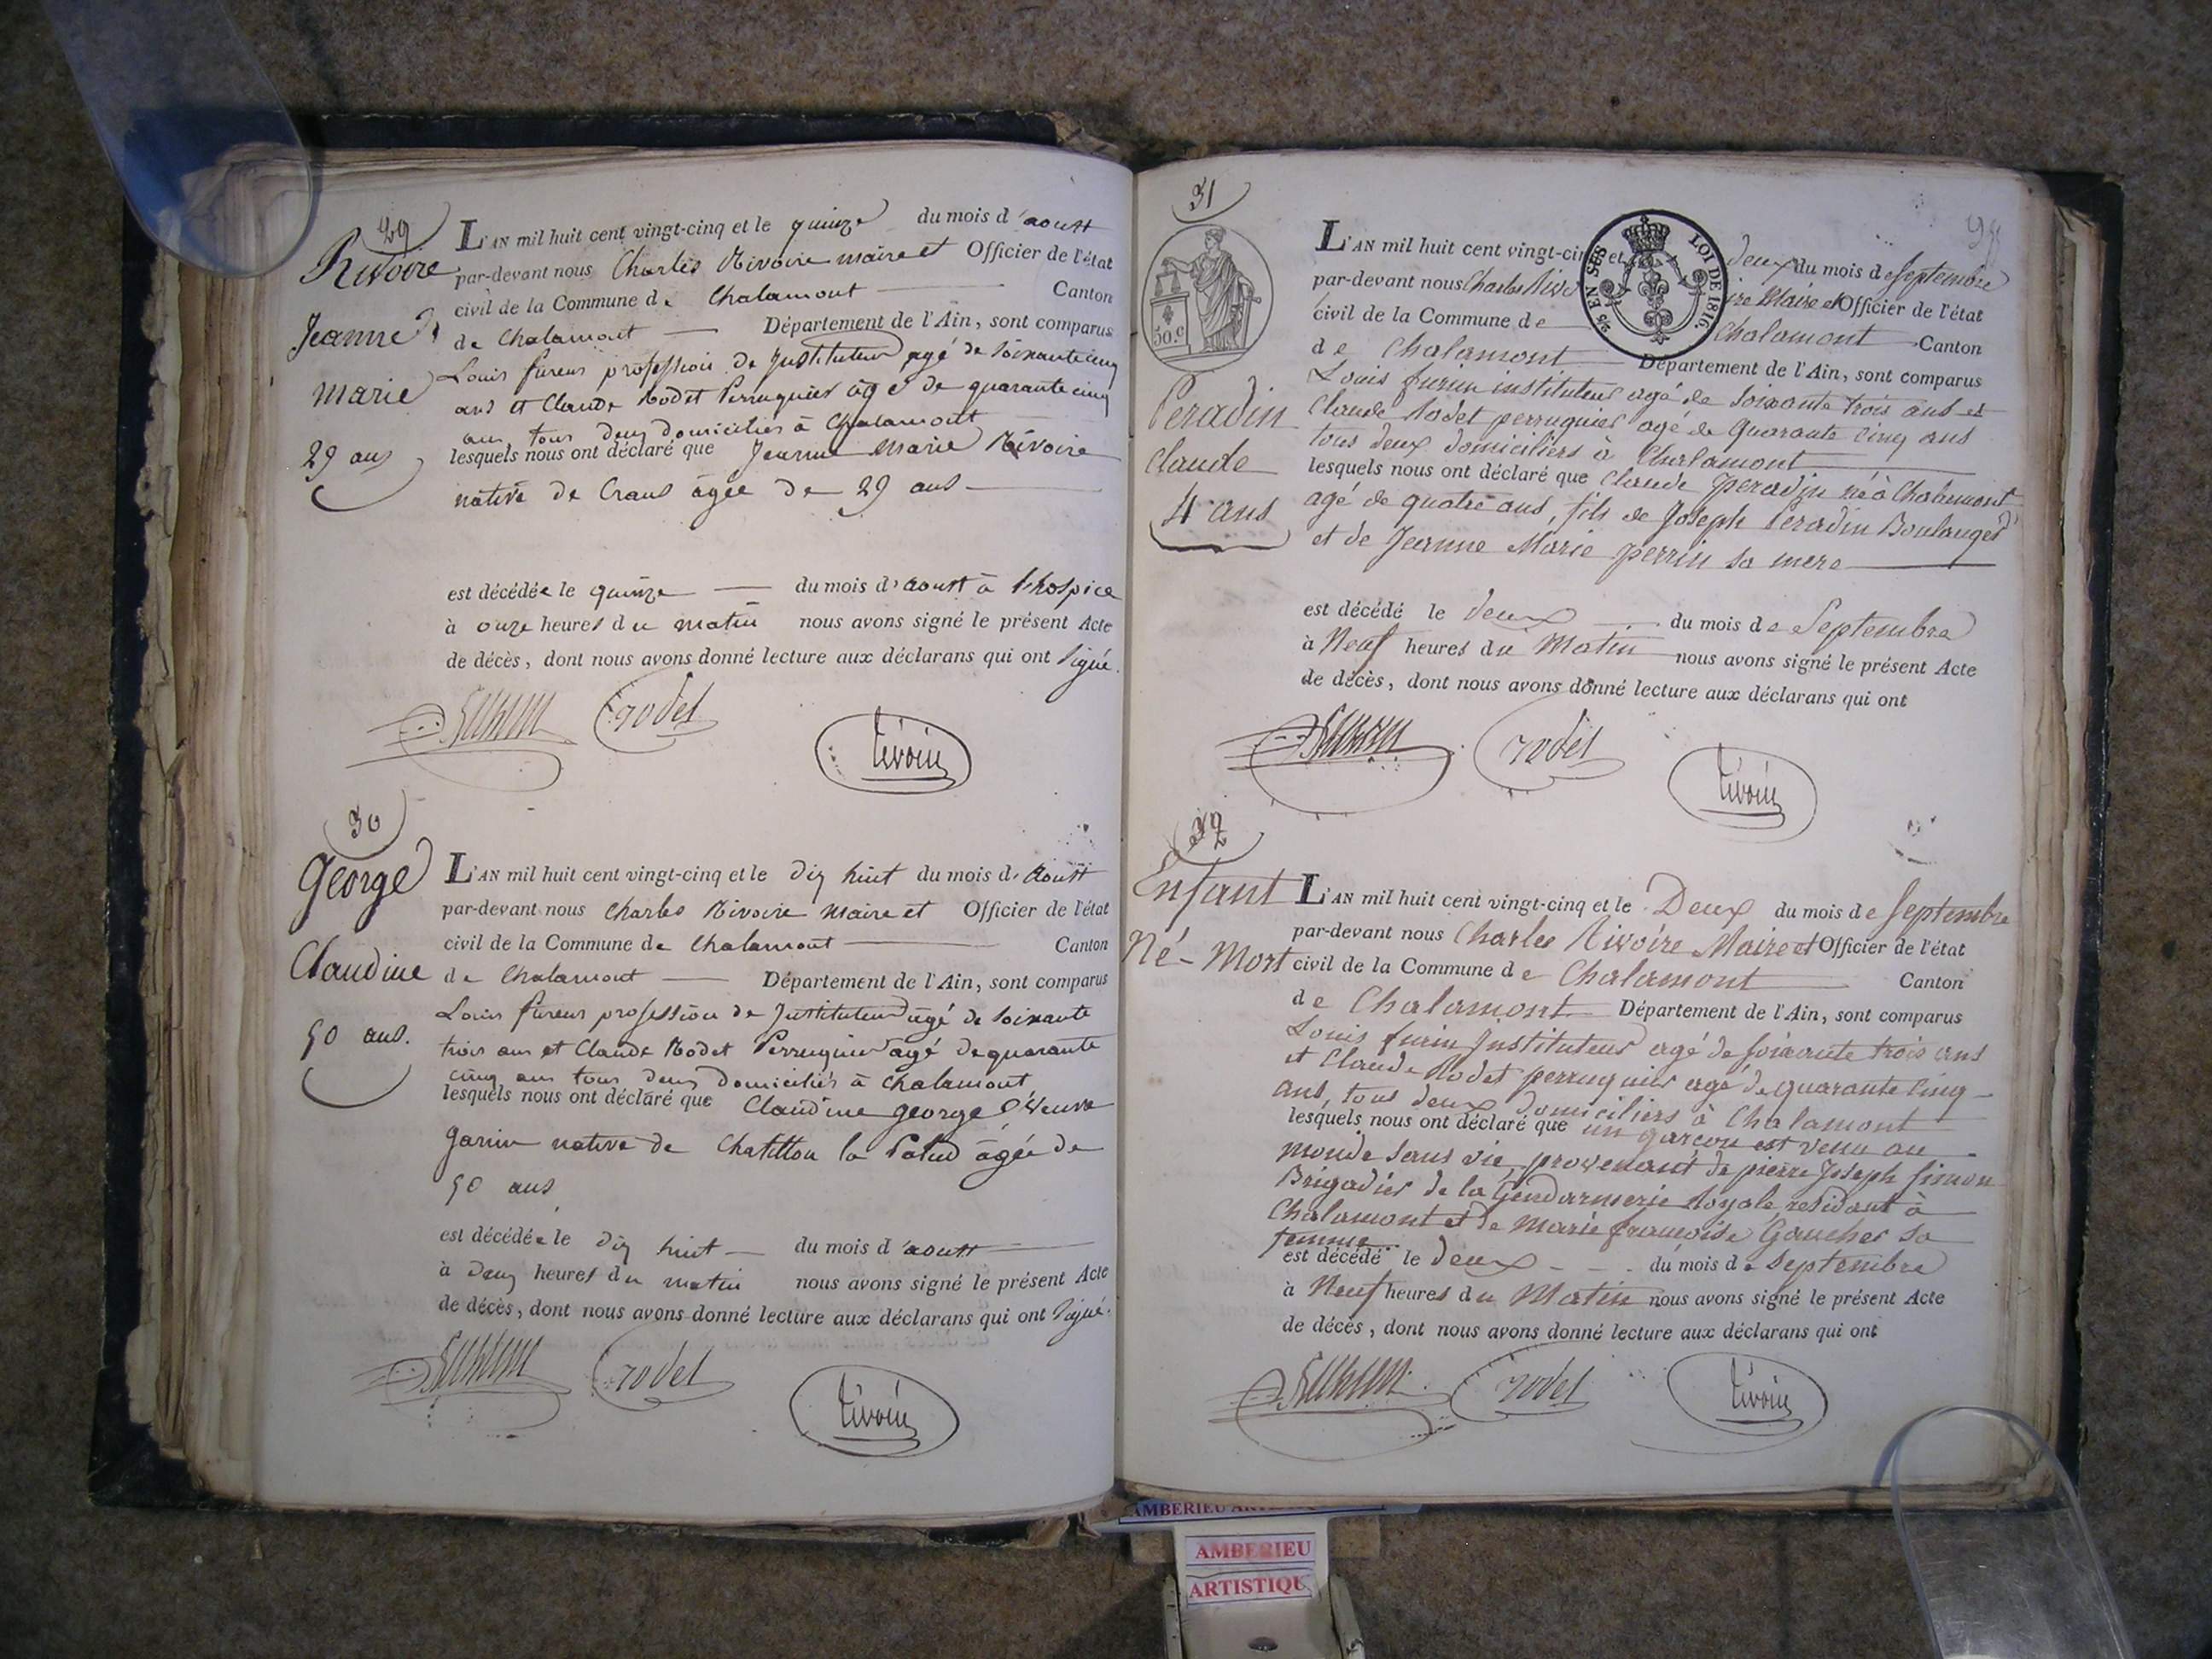 29
Rivoire
Jeanne
Marie
29 ans
L'AN mil huit cent vingt-cinq et le quinze du mois d'aoust
par-devant nous Charles Rivoire maire et Officier de l'état
civil de la Commune de Chalamont Canton
de Chalamont Département de l'Ain, sont comparus
Louis fureux profession de Instituteur agé de soixante cinq
ans et Claude Rodet Perruquier agé de quarante cinq
ans, tous deux domiciliés à Chalamont
lesquels nous ont déclaré que Jeanne Marie Rivoire
native de Crans agée de 29 ans
est décédée le quinze du mois d'aoust à l'hospice
à onze heures du matin nous avons signé le présent Acte
de décès, dont nous avons donné lecture aux déclarans qui ont signé.
rodet
Rivoire
30
George
Claudine
50 ans.
L'AN mil huit cent vingt-cinq et le dix huit du mois d'aoust
par-devant nous Charles Rivoire maire et Officier de l'état
civil de la Commune de Chalamont Canton
de Chalamont Département de l'Ain, sont comparus
Louis fureux profession de Instituteur agé de soixante
trois ans et Claude Rodet Perruquier agé de quarante
cinq ans tous deux domiciliés à Chalamont
lesquels nous ont déclaré que Claudine george Veuve
Garin native de Chatillon la Palud âgée de
50 ans
est décédée le dix huit du mois d'aoust
à deux heures du matin nous avons signé le présent Acte
de décès, dont nous avons donné lecture aux déclarans qui ont signé.
rodet
Rivoire
31
50.c
Peradin
Claude
4 ans
L'AN mil huit cent vingt-cinq et deux du mois de Septembre
par-devant nous Charles Rivoire Maire et Officier de l'état
civil de la Commune de Chalamont Canton
de Chalamont Département de l'Ain, sont comparus
LOI DE 1816.
Louis furin instituteur agé de soixante trois ans et
Claude Rodet perruquier agé de Quarante Cinq ans
tous deux domiciliers à Chalamont
lesquels nous ont déclaré que Claude peradin né à Chalamont
agé de quatre ans, fils de Joseph Peradin Boulanger
et de Jeanne Marie perrin sa mere
est décédé le deux du mois de Septembre
à Neuf heures du Matin nous avons signé le présent Acte
de décès, dont nous avons donné lecture aux déclarans qui ont
rodet
Rivoire
32
Enfant
Né-Mort
L'AN mil huit cent vingt-cinq et le Deux du mois de Septembre
par-devant nous Charles Rivoire Maire et Officier de l'état
civil de la Commune de Chalamont Canton
de Chalamont Département de l'Ain, sont comparus
Louis furin Instituteur agé de soixante trois ans
et Claude Rodet perruquier agé de quarante Cinq
ans, tous deux domiciliers à Chalamont
lesquels nous ont déclaré que un garçon est venu au
monde sans vie, provenant de pierre Joseph Simon
Brigadier de la Gendarmerie Royale residant à
Chalamont et de Marie françoise Gaucher sa
femme
est décédé le deux du mois de Septembre
à Neuf heures du Matin nous avons signé le présent Acte
de décès, dont nous avons donné lecture aux déclarans qui ont
rodet
Rivoire
AMBERIEU
AMBERIEU
ARTISTIQU